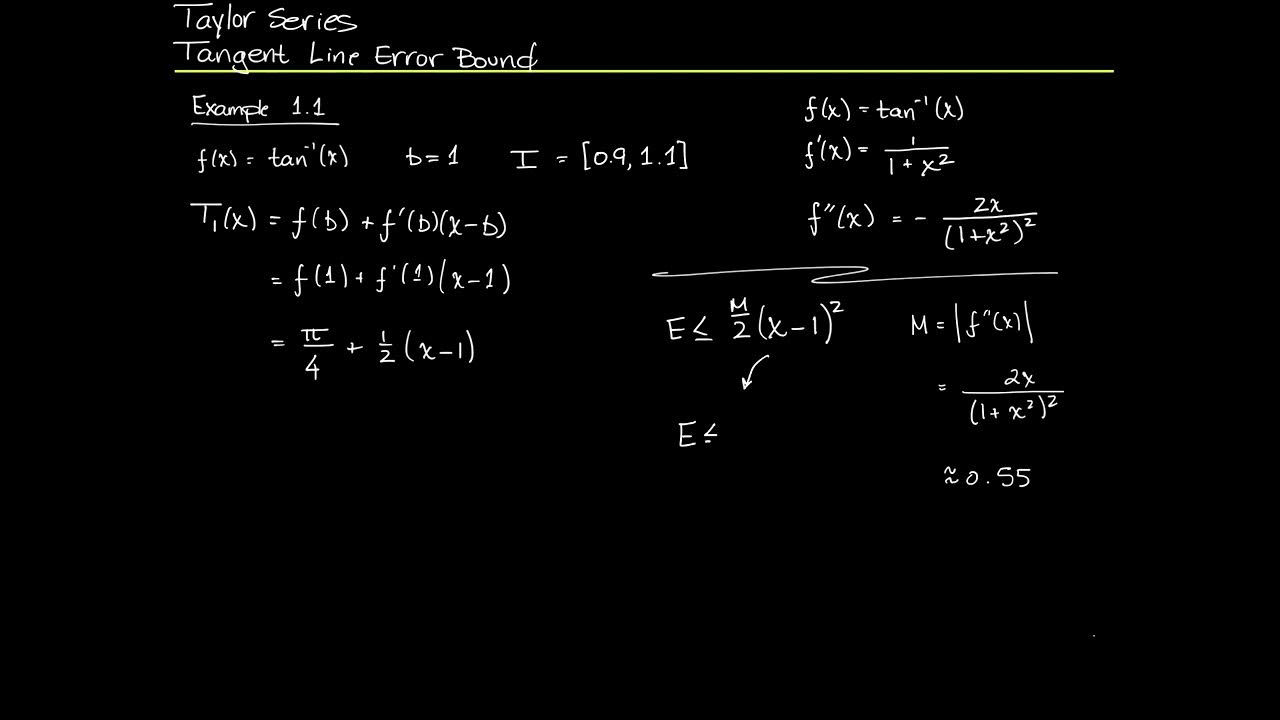 Taylor Series
Tangent Line Error Bound
Example 1.1
f(x) = tan⁻¹(x) b=1 I = [0.9, 1.1]
T₁(x) = f(b) + f'(b)(x-b)
= f(1) + f'(1)(x-1)
= π/4 + 1/2 (x-1)
f(x) = tan⁻¹(x)
f'(x) = 1/(1+x²)
f''(x) = - 2x/(1+x²)²
E ≤ M/2 (x-1)²
E ≤
M = |f''(x)|
= 2x/(1+x²)²
≈ 0.55